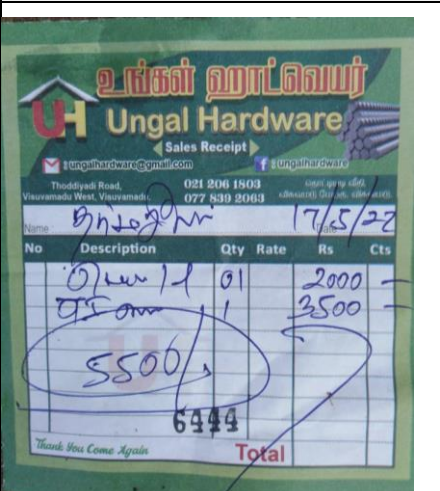 உங்கள் ஹாட்வெயர்
UH Ungal Hardware
Sales Receipt
: ungalhardware@gmail.com : ungalhardware
Thoddiyadi Road, 021 206 1803
Visuvamadu West, Visuvamadu. 077 839 2063
Name Date 17/5/22
No Description Qty Rate Rs Cts
01 2000 -
1 3500 -
5500/
6444
Thank You Come Again Total